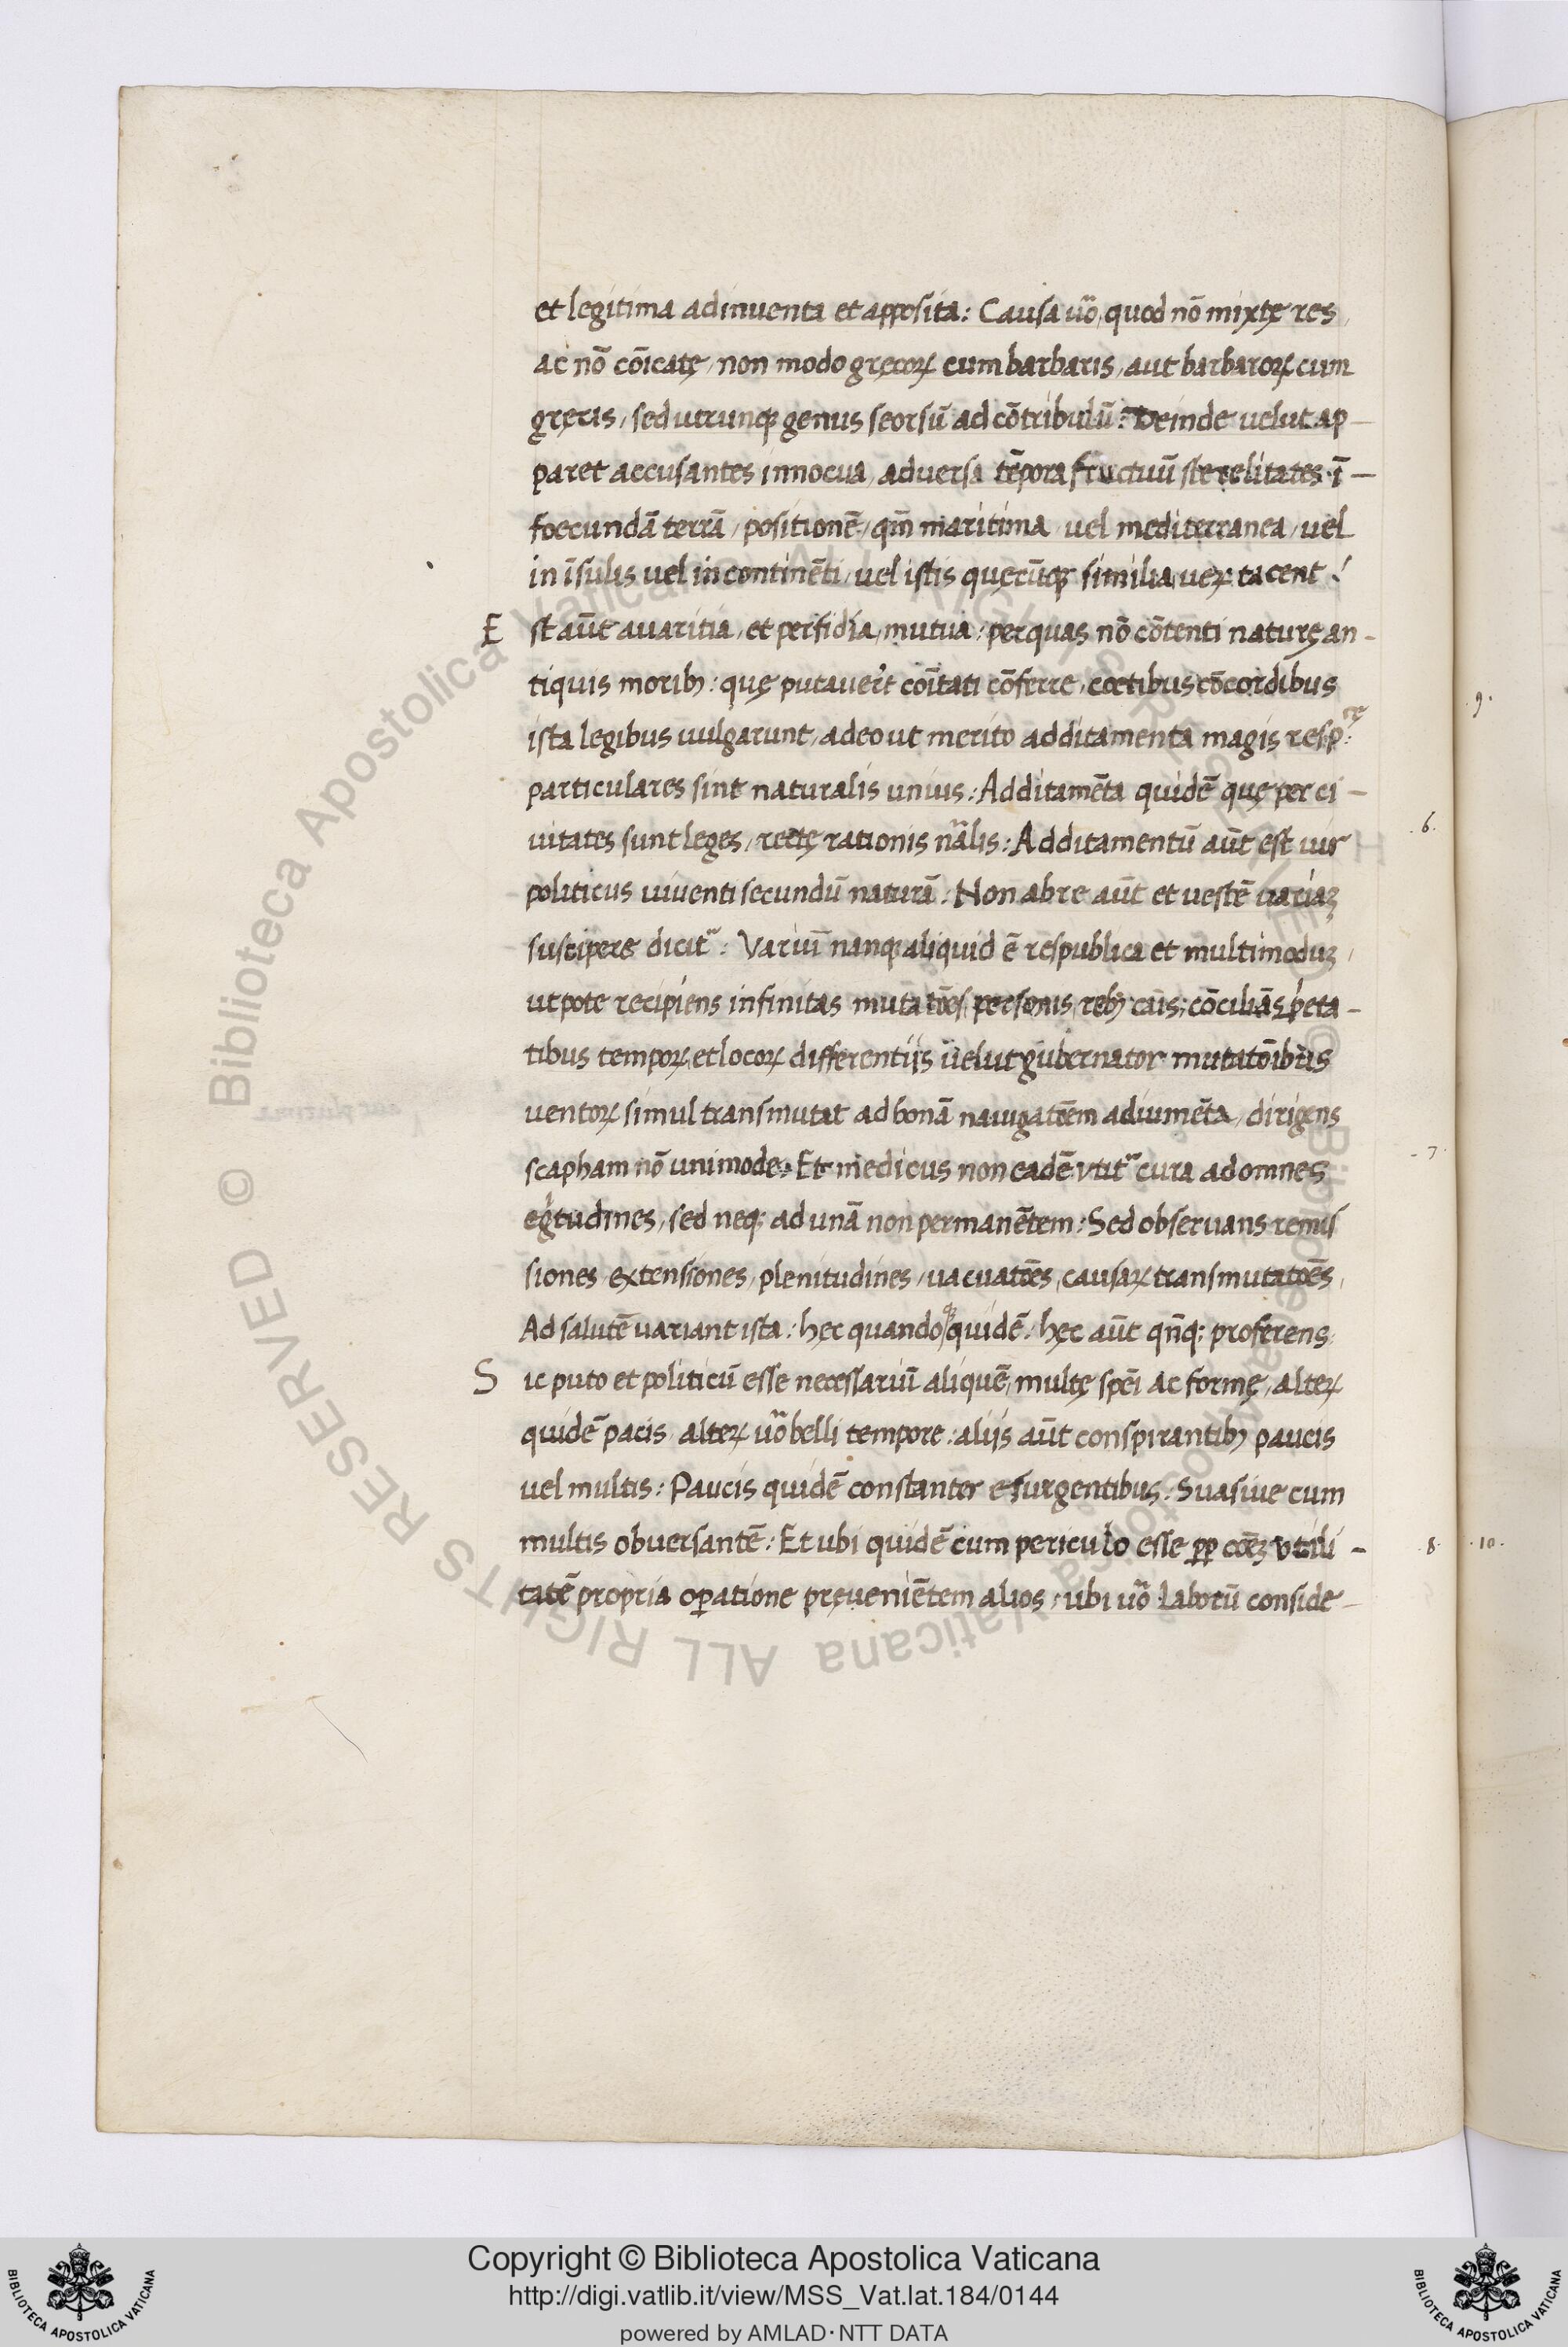 et legitima adinuenta et apposita: Causa ũo, quod nõ mixtę res,
ac nõ cõicatę, non modo gręcoꝝ cum barbaris, aut barbaroꝝ cum
gręcis, sed utrunqꝫ genus seorsũ ad cõtribulũ: Deinde uelut ap-
paret accusantes innocua, aduersa tẽpora fructuũ sterelitates ĩ-
foecundã terrã, positionẽ, qm̃ maritima uel mediterranea, uel
in ĩsulis uel in continẽti, uel istis quęcũqꝫ similia, ueꝝ tacent:
Est aũt auaritia, et perfidia, mutua: per quas nõ cõtenti naturę an-
tiquis moribꝫ: quę putauer̃t coĩtati cõferre, cœtibus cõcordibus
ista legibus uulgarunt, adeo ut merito additamenta magis resp:
particulares sint naturalis unius: Additamẽta quidẽ quę per ci-
uitates sunt leges, rectę rationis nãlis: Additamentũ aũt est uir
politicus uiuenti secundũ naturã: Non ab re aũt et uestẽ uariaꝫ
suscipere dicit̃: Variũ nanqꝫ aliquid ẽ respublica et multimoduꝫ,
utpote recipiens infinitas mutatiões, personis, rebꝫ cãis;
tibus tempoꝝ, et locoꝝ differentijs uelut gubernator mutatõibus
uentoꝝ simul transmutat ad bonã nauigatõem adiumẽta, dirigens
scapham nõ unimode: Et medicus non eadẽ utit̃ cura ad omnes
egtudines, sed neqꝫ ad unã non permanẽtem: Sed obseruans remis
siones extensiones, plenitudines, uacuatões, causaꝝ transmutatões,
Ad salutẽ uariant ista: hęc quandoqꝫ quidẽ: hęc aũt qñqꝫ proferens:
Sic puto et politicũ esse necessariũ aliquẽ, multę spẽi ac formę, alteꝝ
quidẽ pacis, alteꝝ ũo belli tempore: alijs aũt conspirantibꝫ paucis
uel multis: Paucis quidẽ constanter esurgentibus: Suasiue cum
multis obuersantẽ: Et ubi quidẽ cum periculo esse ꝓp cõeꝫ utili-
tatẽ propria oꝑatione pręueniẽtem alios: ubi ũo laborũ conside-
.9.
.6.
.7.
.8.
.10.
Copyright © Biblioteca Apostolica Vaticana
http://digi.vatlib.it/view/MSS_Vat.lat.184/0144
powered by AMLAD·NTT DATA
BIBLIOTECA APOSTOLICA VATICANA
BIBLIOTECA APOSTOLICA VATICANA
© Biblioteca Apostolica Vaticana ALL RIGHTS RESERVED